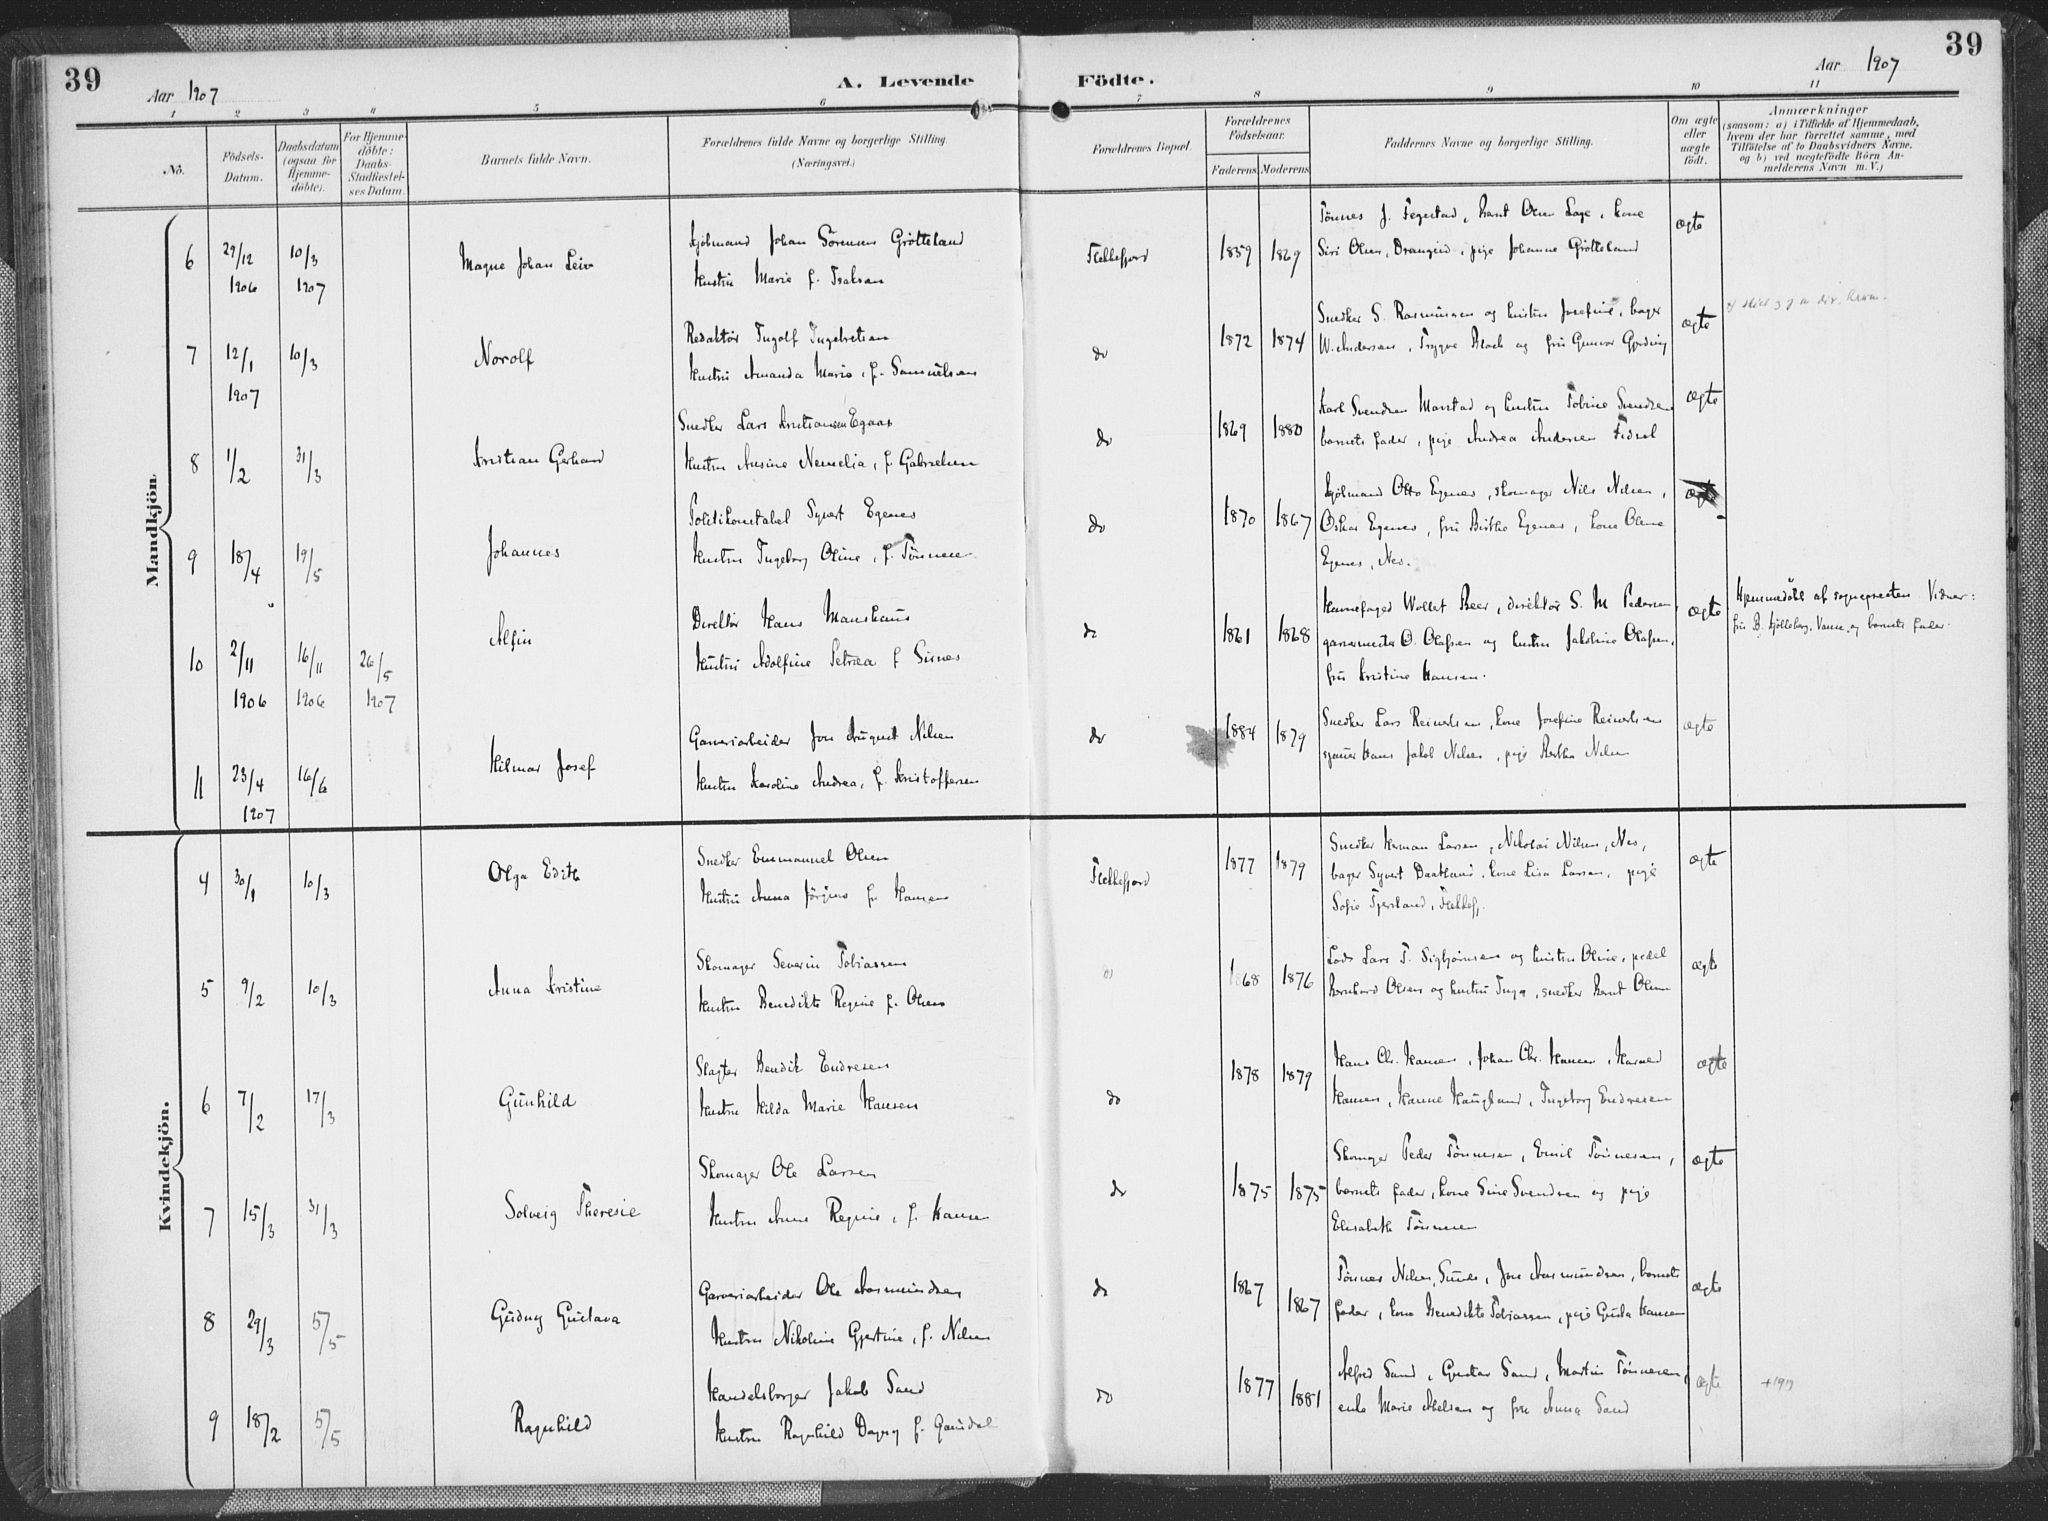 39
39
Aar 1907
A. Levende
Födte.
Aar 1907
1 2 3 4 5 6 7 8 9 10 11
No.
Födsels-
Datum.
Daabsdatum
(ogsaa for
Hjemme-
döbte).
For Hjemme-
döbte:
Daabs-
Stadfæstel-
ses Datum.
Barnets fulde Navn.
Forældrenes fulde Navne og borgerlige Stilling.
(Næringsvei.)
Forældrenes Bopæl.
Forældrenes
Födselsaar.
Faderens Moderens
Faddernes Navne og borgerlige Stilling.
Om ægte
eller
uægte
födt.
Anmærkninger
(saasom: a) i Tilfælde af Hjemmedaab,
hvem der har forrettet samme, med
Tilföielse af to Daabsvidners Navne,
og b) ved uægtefödte Börn An-
melderens Navn m. V.)
Mandkjön.
6 29/12 1906 10/3 1907
Magne Johan Leiv
Kjøbmand Johan Sørensen Grøtteland
Hustru Marie f. Isaksen
Flekkefjord
1859 1869
Tönnes J. Fegestad, Bernt Olsen Lage, kone
Siri Olsen, Drangeid, pige Johanne Grøtteland
ægte
7 12/1 1907 10/3
Norolf
Redaktör Ingolf Ingebretsen
Hustru Amanda Marie, f. Samuelsen
do
1872 1874
Snedker S. Rasmussen og hustru Josefine, bager
W. Andersen, Trygve Block og fru Gunvor Gjerding
ægte
8 1/2 31/3
Kristian Gerhard
Snedker Lars Kristiansen Egaas
Hustru Ansine Nemelia, f. Gabrielsen
do
1869 1880
Karl Svendsen Maustad og hustru Tobine Svendsen
barnets fader, pige Andrea Andersen Fidsel
ægte
9 18/4 19/5
Johannes
Politikonstabel Syvert Egenes
Hustru Ingeborg Oline, f. Tönnesen
do
1870 1867
Kjøbmand Otto Egenes, skomager Nils Nilsen,
Oskar Egenes, fru Birthe Egenes, kone Oline
Egenes, Nes.
ægte
10 2/11 1906 16/11 1906 26/5 1907
Alfin
Direktör Hans Manshaus
Hustru Adolfine Petrea f. Sirnes
do
1861 1868
Havnefoged Wollert Beer, direktör S. M. Pedersen,
garvermester O. Olafsen og hustru Jakobine Olafsen,
fru Kristine Hansen.
ægte
Hjemmedöbt af sognepresten. Vidner:
fru B. Kjölleberg, Vanse, og barnets fader.
11 23/4 1907 16/6
Hilmar Josef
Garveriarbeider Jon August Nilsen
Hustru Karoline Andrea, f. Kristoffersen
do
1884 1879
Snedker Lars Reinertsen, kone Josefine Reinertsen
Hans Jakob Nilsen, pige Bertha Nilsen
ægte
Kvindekjön.
4 30/1 10/3
Olga Edith
Snedker Emmanuel Olsen
Hustru Anna Jörgine f. Hansen
Flekkefjord
1877 1879
Snedker Herman Larsen, Nikolai Nilsen, Nes,
bager Syvert Daatland, kone Lisa Larsen, pige
Sofie Tjersland, Flekkefj.
ægte
5 9/2 10/3
Anna Kristine
Skomager Severin Tobiassen
Hustru Benedikte Regine f. Olsen
do
1868 1876
Lods Lars T. Sigbjörnsen og hustru Oline, pedel
Bernhard Olsen og hustru Inga, snedker Bernt Olsen
ægte
6 7/2 17/3
Gunhild
Slagter Bendik Endresen
Hustru Hilda Marie Hansen
do
1878 1879
Hans Chr. Hansen, Johan Chr. Hansen,
Hansen, Hanne Haugland, Ingeborg Endresen
ægte
7 15/3 31/3
Solveig Theresie
Skomager Ole Larsen
Hustru Anne Regine, f. Hansen
do
1875 1875
Skomager Peder Tönnesen, Emil Tönnesen,
barnets fader, kone Sine Svendsen og pige
Elisabeth Tönnesen
ægte
8 29/3 5/5
Gudny Gustava
Garveriarbeider Ole Aasmundsen
Hustru Nikoline Gjertine, f. Nilsen
do
1867 1867
Tönnes Nilsen, Sunde, Jon Aasmundsen, barnets
fader, kone Benedikte Tobiassen, pige Gusta Hansen
ægte
9 18/2 5/5
Ragnhild
Handelsborger Jakob Sand
Hustru Ragnhild Dagny f. Qamdal
do
1877 1881
Alfred Sand, Gustav Sand, Martin Tönnesen,
enke Marie Abelsen og fru Anna Sand
ægte